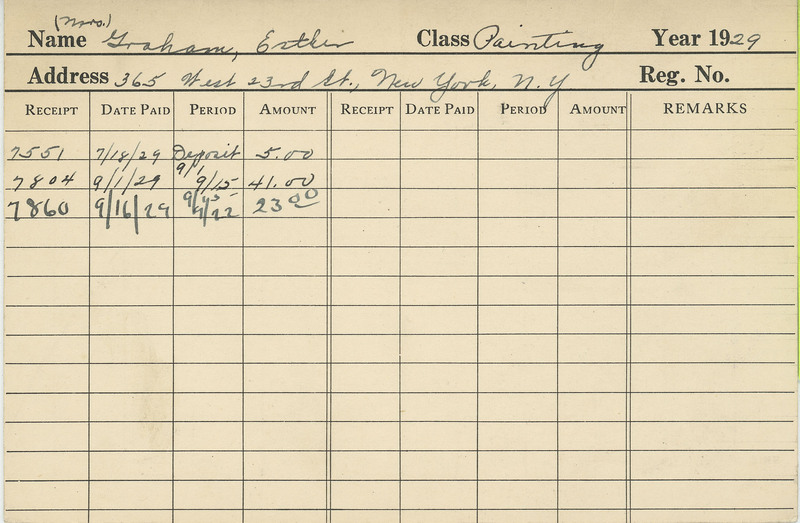 (Mrs.)
Name Graham, Esther Class Painting Year 1929
Address 365 West 23rd St., New York, N.Y Reg. No.
RECEIPT DATE PAID PERIOD AMOUNT RECEIPT DATE PAID PERIOD AMOUNT REMARKS
7551 7/18/29 Deposit 5.00
7804 9/1/29 9/1 9/15 41.00
7860 9/16/29 9/15 9/22 23.00